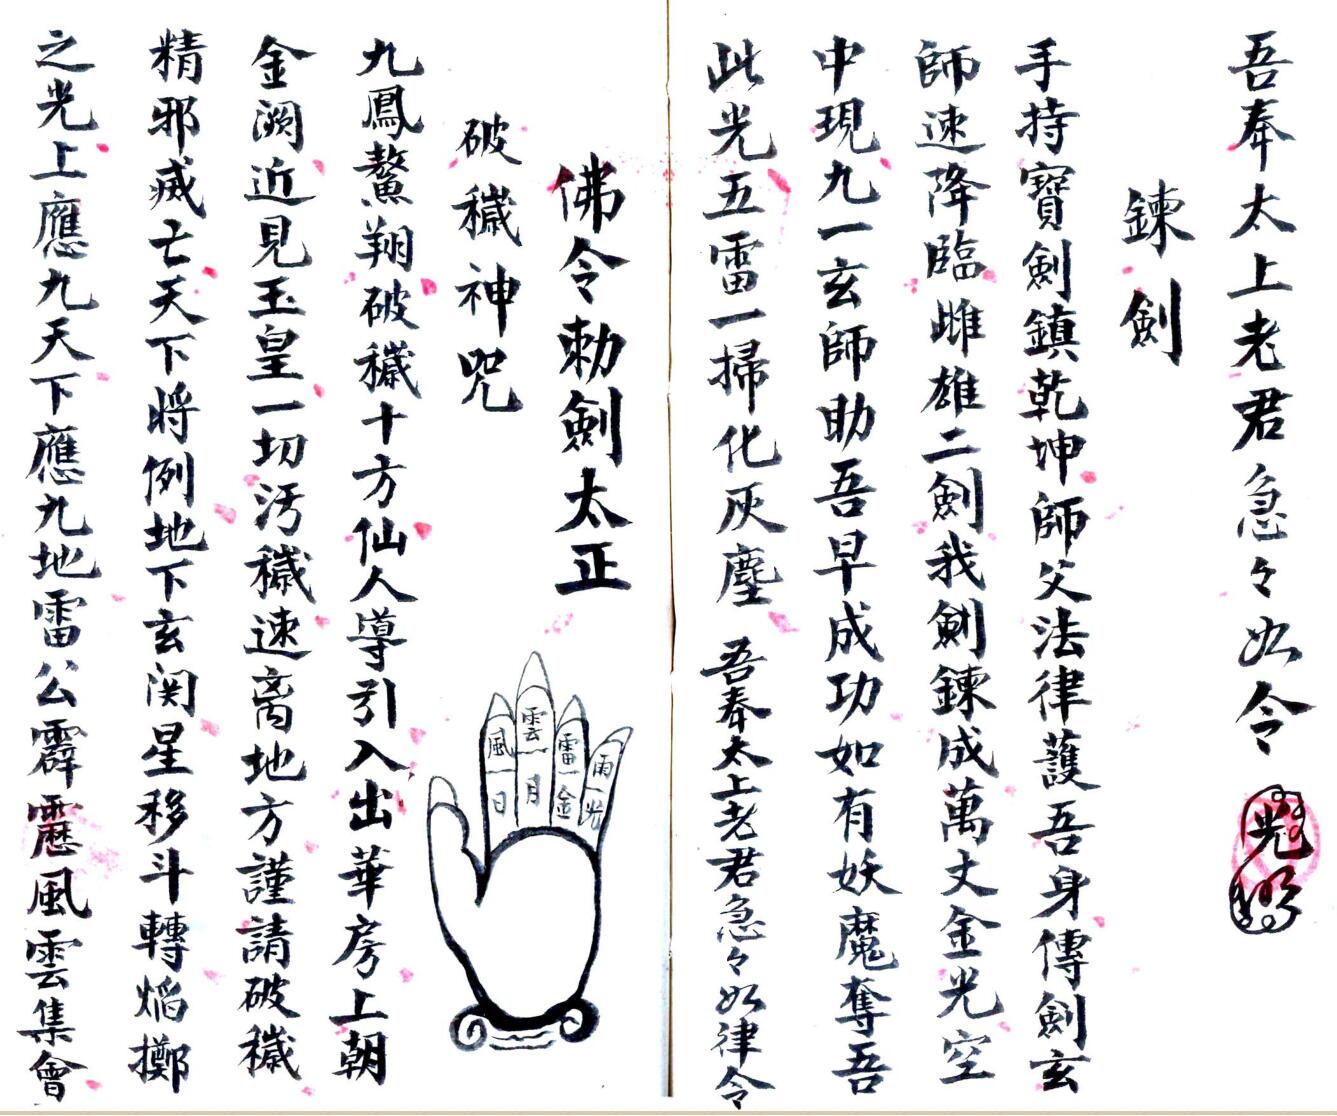 吾奉太上老君急々如令
鍊劍
手持寶劍鎮乾坤師父法律護吾身傳劍玄
師速降臨雌雄二劍我劍鍊成萬丈金光空
中現九一玄師助吾早成功如有妖魔奪吾
此光五雷一掃化灰塵吾奉太上老君急々如律令
佛令勅劍太正
破穢神咒
九鳳鰲翔破穢十方仙人導引入出華房上朝
金闕近見玉皇一切污穢速离地方謹請破穢
精邪烕亡天下將例地下玄関星移斗轉焰擲
之光上應九天下應九地雷公霹靂風雲集會
風一日
雲一月
雷一金
雨一光